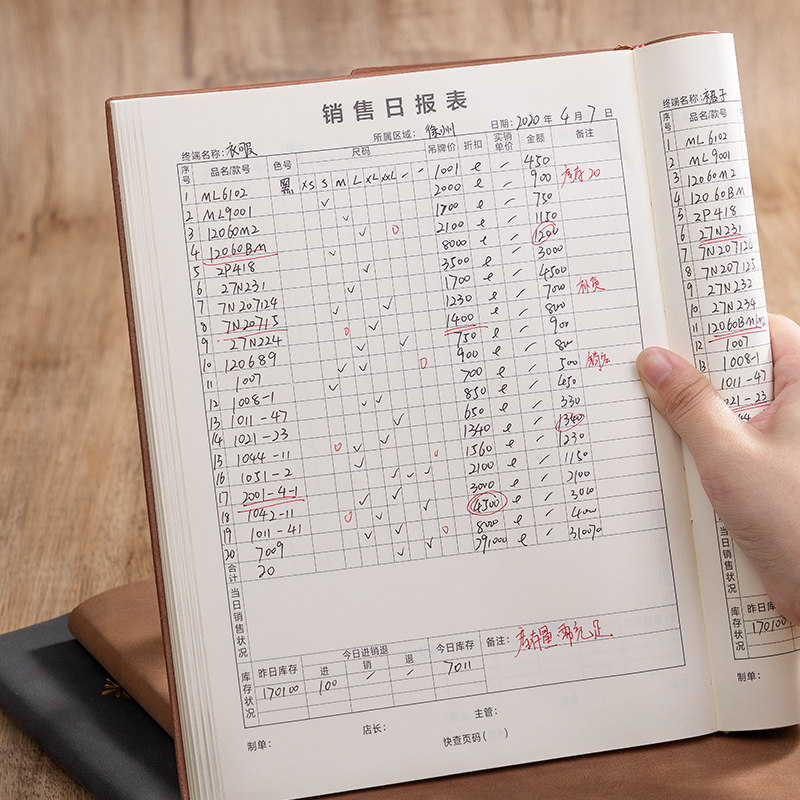 销售日报表
终端名称: 衣服 所属区域: 徐州 日期: 2020 年 4 月 7 日
序号 品名/款号 色号 尺码 吊牌价 折扣 实销单价 金额 备注
XS S M L XL XXL
1 ML6102 黑 1001 450
2 ML9001 2000 900 库存20
3 12060M2 1700 750
4 12060BM 2100 1150
5 2P418 8000 1200
6 27N231 3500 3000
7 7N207124 1700 4500
8 7N20715 1230 700 补货
9 27N224 1400 800
10 120689 750 900
11 1007 900 800
12 1008-1 700 500
13 1011-47 850 450
14 1021-23 650 330
15 1044-11 1340 1340
16 1051-2 1560 1230
17 2001-4-1 2100 1150
18 7042-11 3000 2100
19 1011-41 4500 3000
20 7009 800 400
合计 20 291000 310070
当日销售状况
库存状况 昨日库存 今日进销退 今日库存 备注: 库存量需充足
进 销 退
170100 100 7011
制单: 店长: 主管: 快查页码( )
终端名称: 裙子
序号 品名/款号
1 ML6102
2 ML9001
3 12060M2
4 12060BM
5 2P418
6 27N231
7 7N207124
8 7N207125
9 27N232
10 27N234
11 12060BM/M2
12 1007
13 1008-1
1011-47
1021-23
当日销售状况
库存状况 昨日库存
170100
制单: